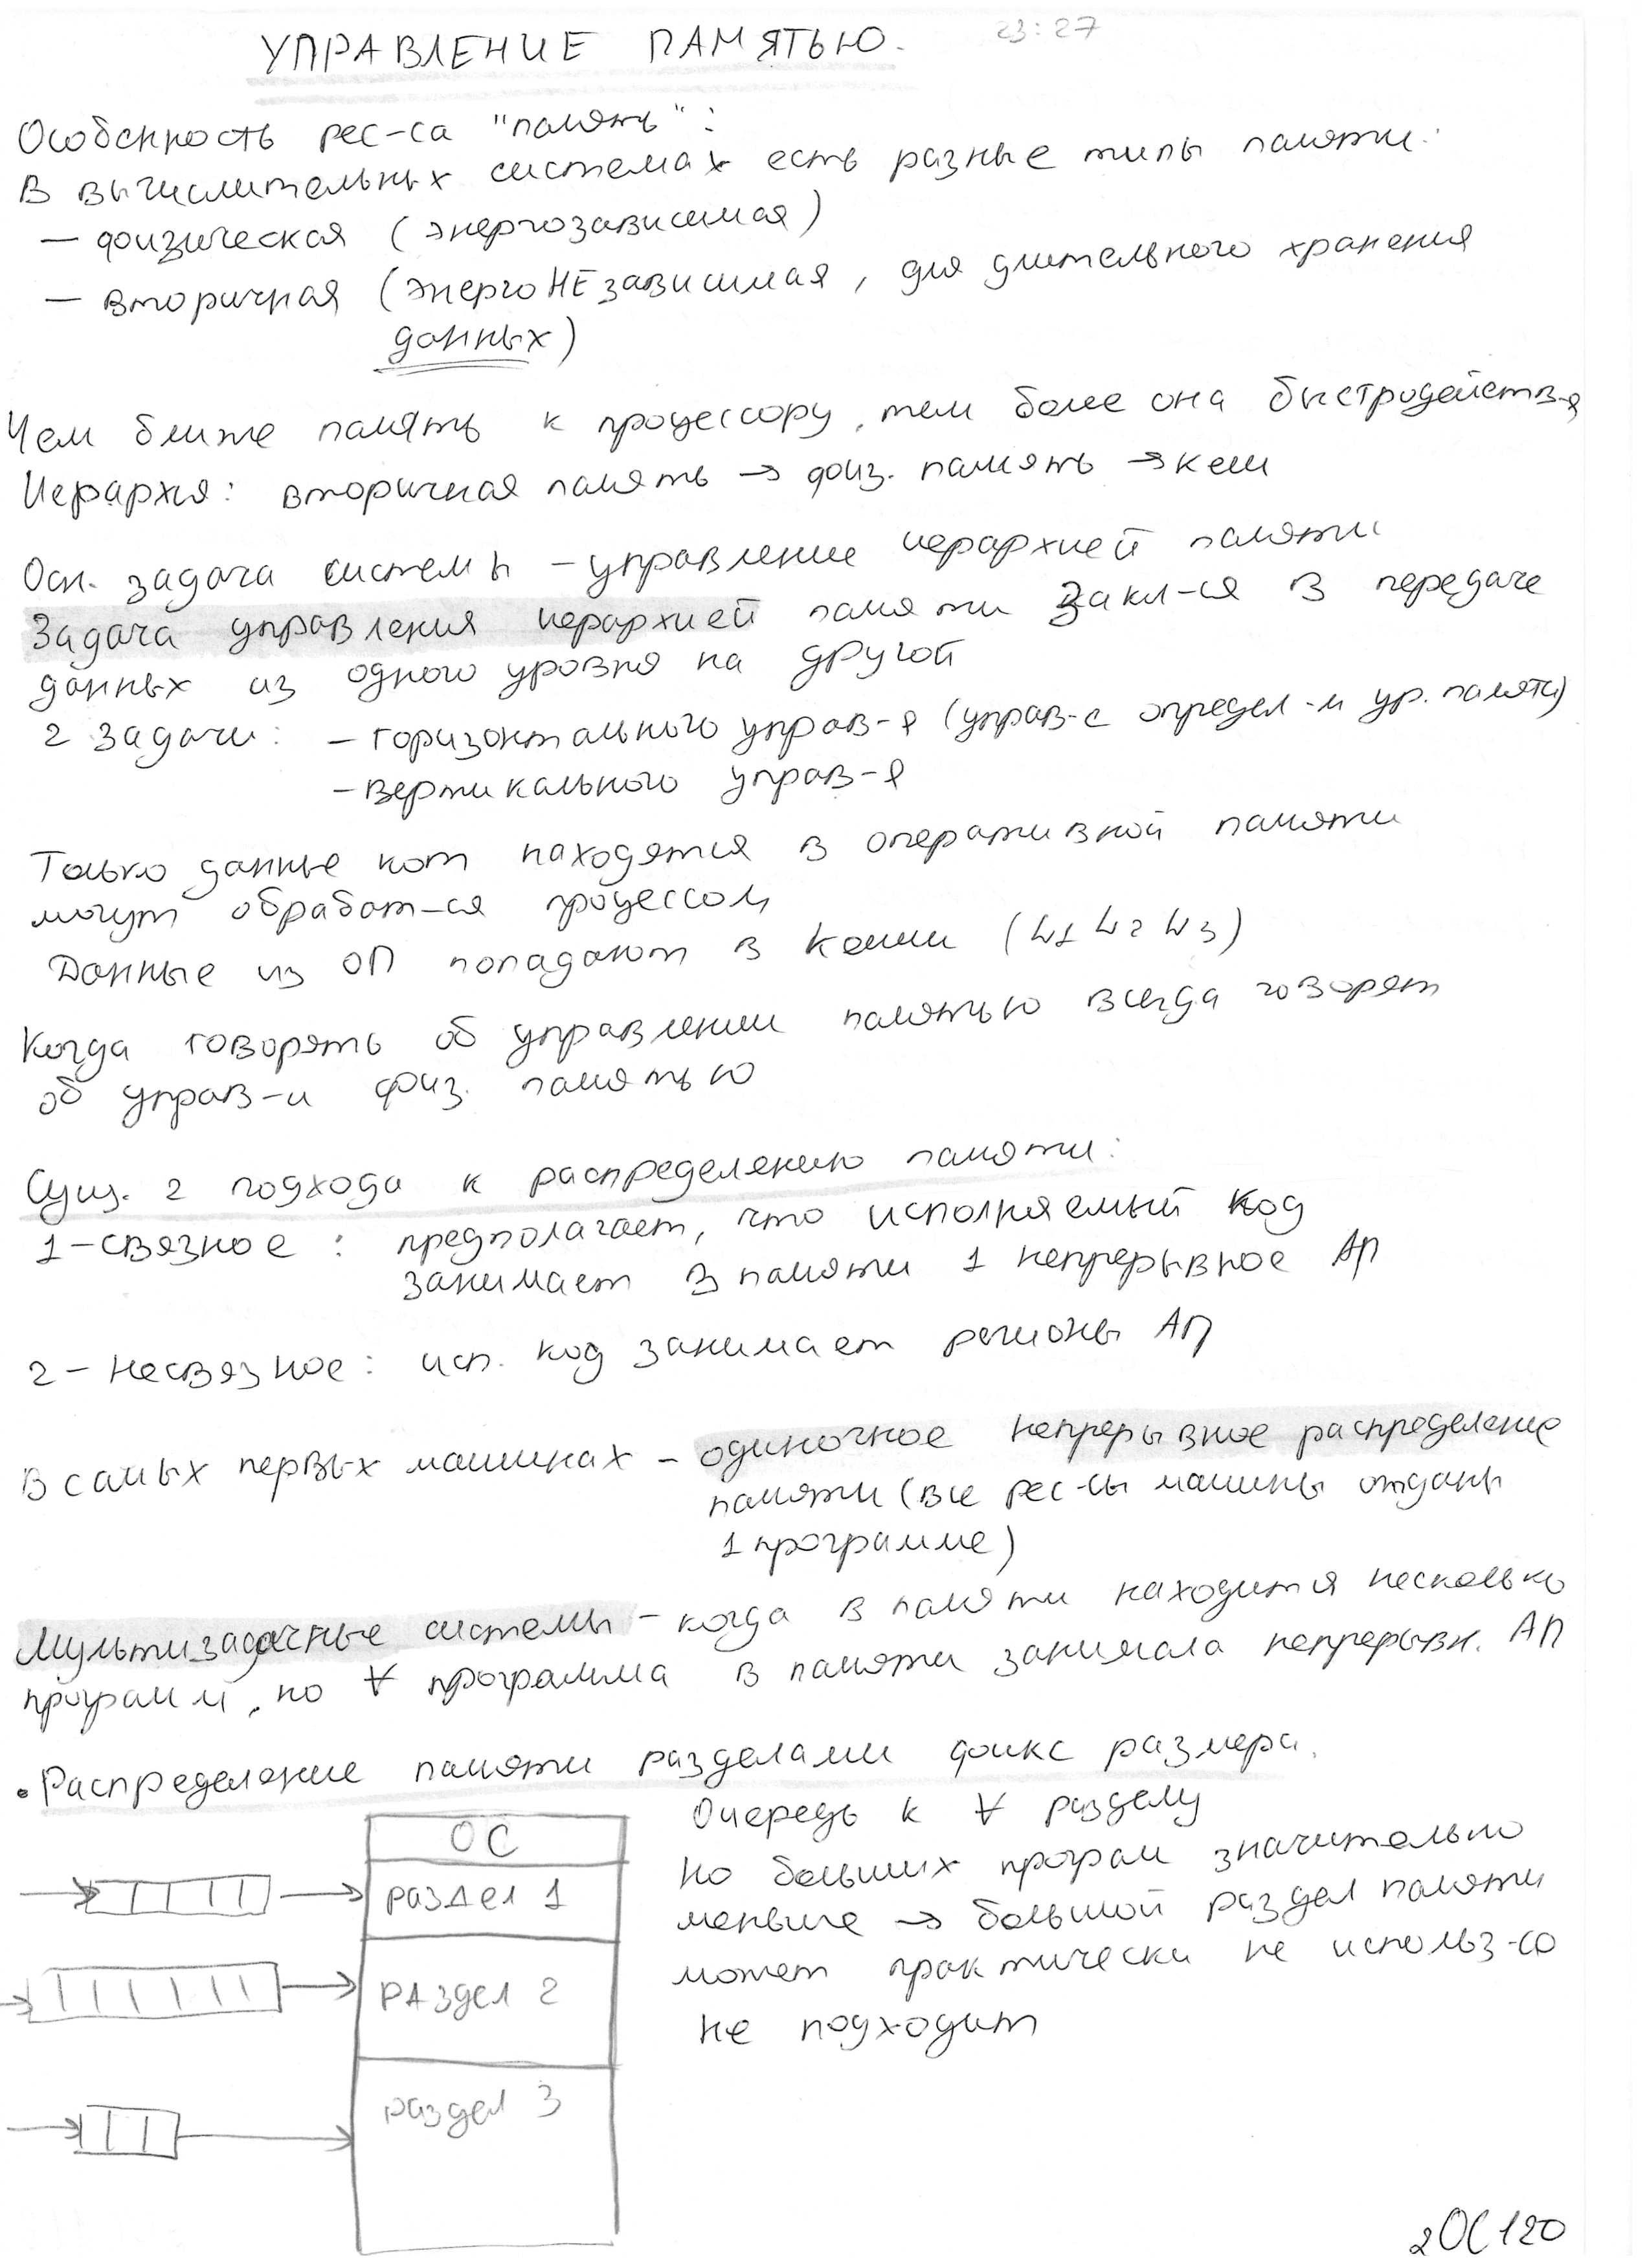 УПРАВЛЕНИЕ ПАМЯТЬЮ. 23:27
Особенность рес-са "память":
В вычислительных системах есть разные типы памяти:
— физическая (энергозависимая)
— вторичная (энергоНЕзависимая, для длительного хранения
данных)
Чем ближе память к процессору, тем более она быстродейств-я
Иерархия: вторичная память → физ. память → кеш
Осн. задача системы - управление иерархией памяти
Задача управления иерархией памяти закл-ся в передаче
данных из одного уровня на другой
2 задачи: - горизонтального управ-я (управ-е определ-м ур. памяти)
- вертикального управ-я
Только данные кот находятся в оперативной памяти
могут обработ-ся процессом
Данные из ОП попадают в кеши (L1 L2 L3)
Когда говорять об управлении памятью всегда говорят
об управ-и физ. памятью
Сущ. 2 подхода к распределению памяти:
1-связное: предполагает, что исполняемый код
занимает в памяти 1 непрерывное АП
2-несвязное: исп. код занимает регионы АП
В самых первых машинах - одиночное непрерывное распределение
памяти (все рес-сы машины отданы
1 программе)
Мультизадачные системы - когда в памяти находится несколько
программ, но ∀ программа в памяти занимала непрерывн. АП
• Распределение памяти разделами фикс размера.
ОС
раздел 1
раздел 2
раздел 3
Очередь к ∀ разделу
Но больших програм значительно
меньше → большой раздел памяти
может практически не использ-ся
не подходит
2ОС120